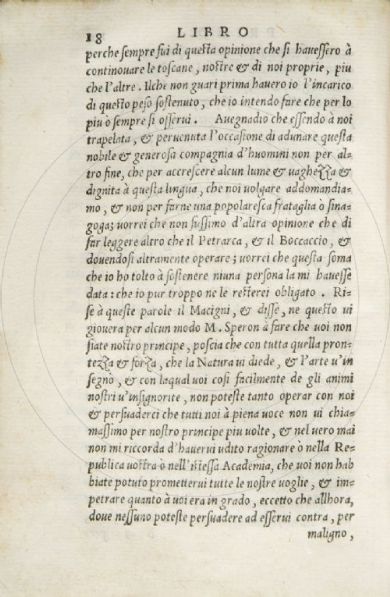 18 LIBRO
perche sempre fui di questa opinione che si hauessero à
continouare le toscane, nostre & di noi proprie, piu
che l'altre. Ilche non guari prima hauero io l'incarico
di questo peso sostenuto, che io intendo fare che per lo
piu ò sempre si osserui. Auegnadio che essendo à noi
trapelata, & peruenuta l'occasione di adunare questa
nobile & generosa compagnia d'huomini non per al-
tro fine, che per accrescere alcun lume & vaghezza &
dignita à questa lingua, che noi volgare addomandia-
mo, & non per farne una popolaresca frataglia ò sina-
goga; uorrei che non fussimo d'altra opinione che di
far leggere altro che il Petrarca, & il Boccaccio, &
douendosi altramente operare; uorrei che questa soma
che io ho tolto à sostenere niuna persona la mi hauesse
data: che io pur troppo ne le resterei obligato. Ri-
se à queste parole il Macigni, & disse, ne questo ui
giouera per alcun modo M. Speron à fare che voi non
siate nostro principe, poscia che con tutta quella pron-
tezza & forza, che la Natura ui diede, & l'arte u'in
segnò, & con laqual uoi cosi facilmente de gli animi
nostri u'insignorite, non poteste tanto operar con noi
& persuaderci che tutti noi à piena uoce non ui chia-
massimo per nostro principe piu volte, & nel uero mai
non mi ricorda d'hauerui udito ragionare ò nella Re-
publica uostra ò nell'istessa Academia, che uoi non hab
biate potuto prometterui tutte le nostre uoglie, & im-
petrare quanto à uoi era in grado, eccetto che allhora,
doue nessuno poteste persuadere ad esserui contra, per
maligno,